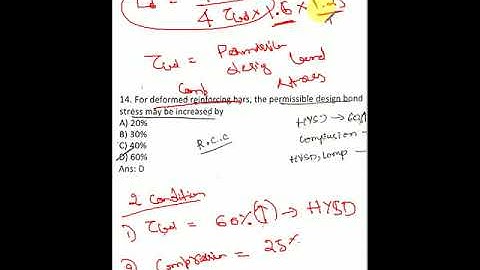 Ld =
4 τbd × 1.6 × 1.25
τbd = Permissible
design bond
Comp stress
14. For deformed reinforcing bars, the permissible design bond
stress may be increased by
A) 20%
B) 30%
C) 40%
D) 60%
Ans: D
R.C.C
HYSD → 60%
Compression -
HYSD, Comp -
2 Condition
1) τbd = 60% (↑) → HYSD
2) Compression = 25%